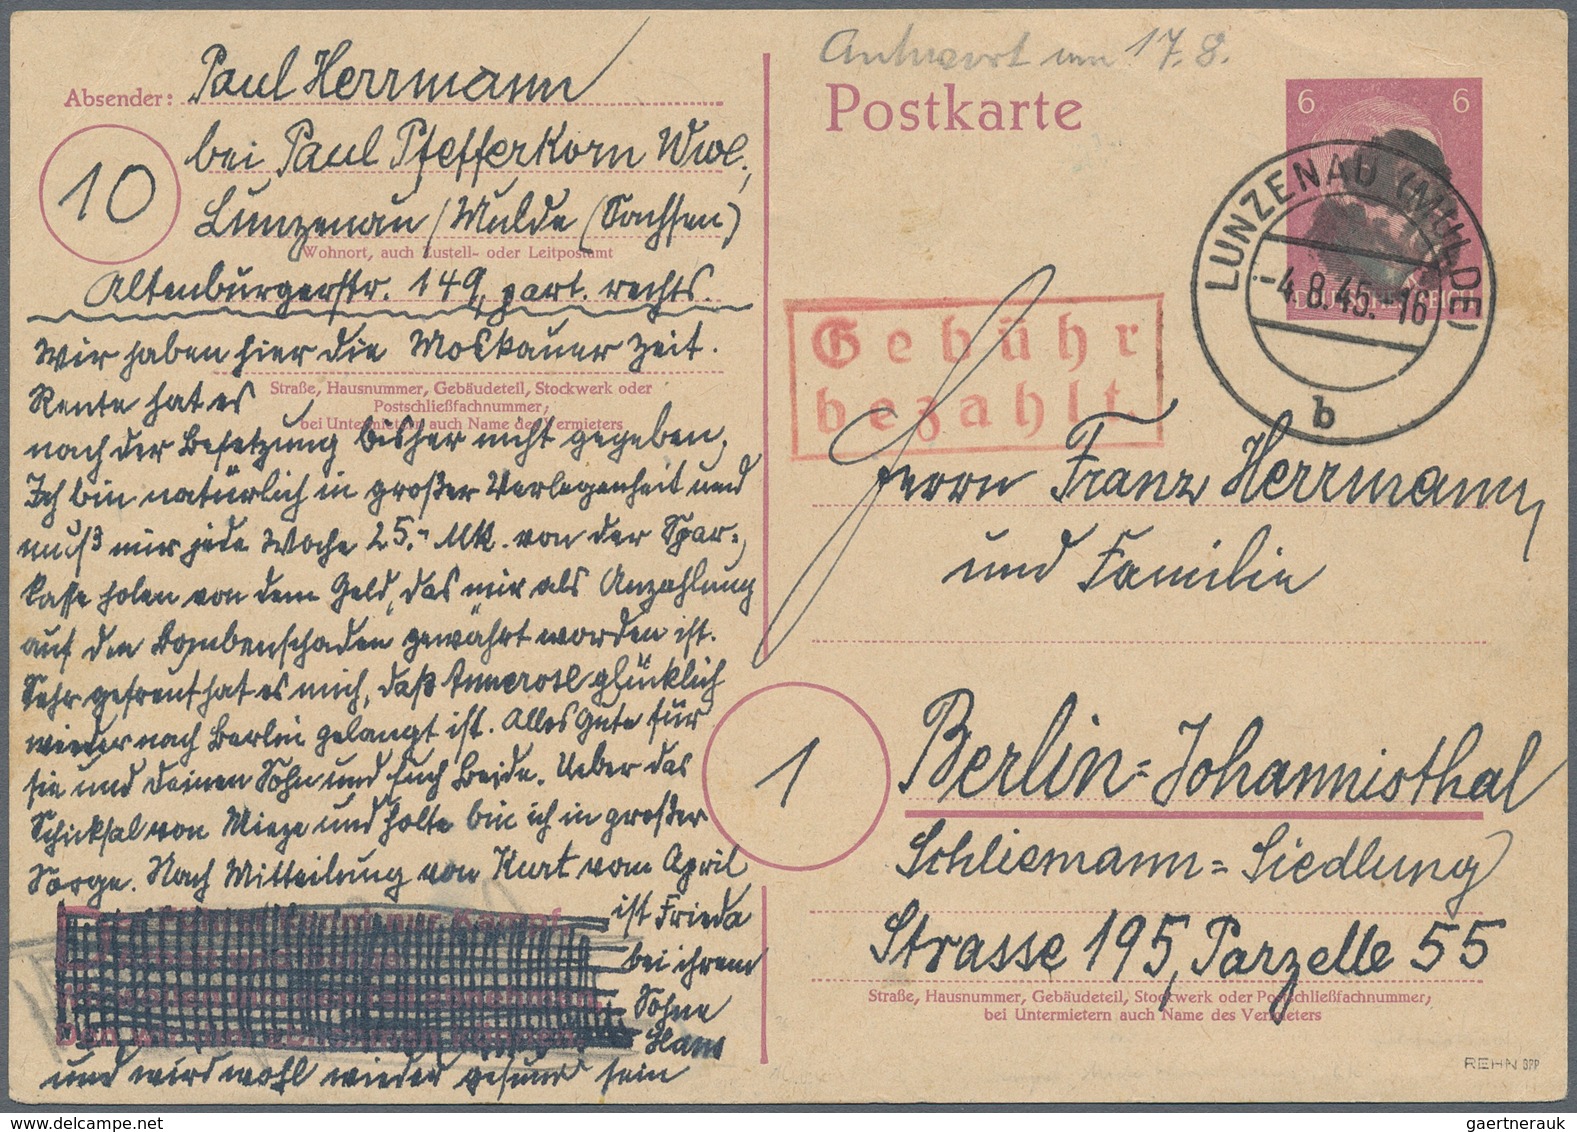 Antwort um 17.8.
Absender: Paul Herrmann
bei Paul Pfefferkorn Wwe.,
10
Lunzenau / Mulde (Sachsen)
Wohnort, auch Zustell- oder Leitpostamt
Altenburgerstr. 149, part. rechts.
Wir haben hier die Moskauer Zeit.
Straße, Hausnummer, Gebäudeteil, Stockwerk oder
Postschließfachnummer;
bei Untermietern auch Name des Vermieters
Rente hat es
nach der Besetzung bisher nicht gegeben.
Ich bin natürlich in großer Verlegenheit und
muß mir jede Woche 25.- Mk. von der Spar-
kasse holen von dem Geld, das mir als Anzahlung
auf den Bombenschaden gewährt worden ist.
Sehr gefreut hat es mich, daß Annerose glücklich
wieder nach Berlin gelangt ist. Alles Gute für
sie und deinen Sohn und Euch Beide. Ueber das
Schicksal von Mieze und Holte bin ich in großer
Sorge. Nach Mitteilung von Kurt vom April
ist Frieda
bei ihrem
Sohne
Hans
und wird wohl wieder gesund sein
Postkarte
6 6
DEUTSCHES REICH
LUNZENAU (MULDE)
-4.8.45.-16
b
Gebühr
bezahlt.
Herrn Franz Herrmann,
und Familie
1
Berlin-Johannisthal
Schliemann-Siedlung
Strasse 195, Parzelle 55
Straße, Hausnummer, Gebäudeteil, Stockwerk oder Postschließfachnummer;
bei Untermietern auch Name des Vermieters
REHN BPP
gaertnerauk